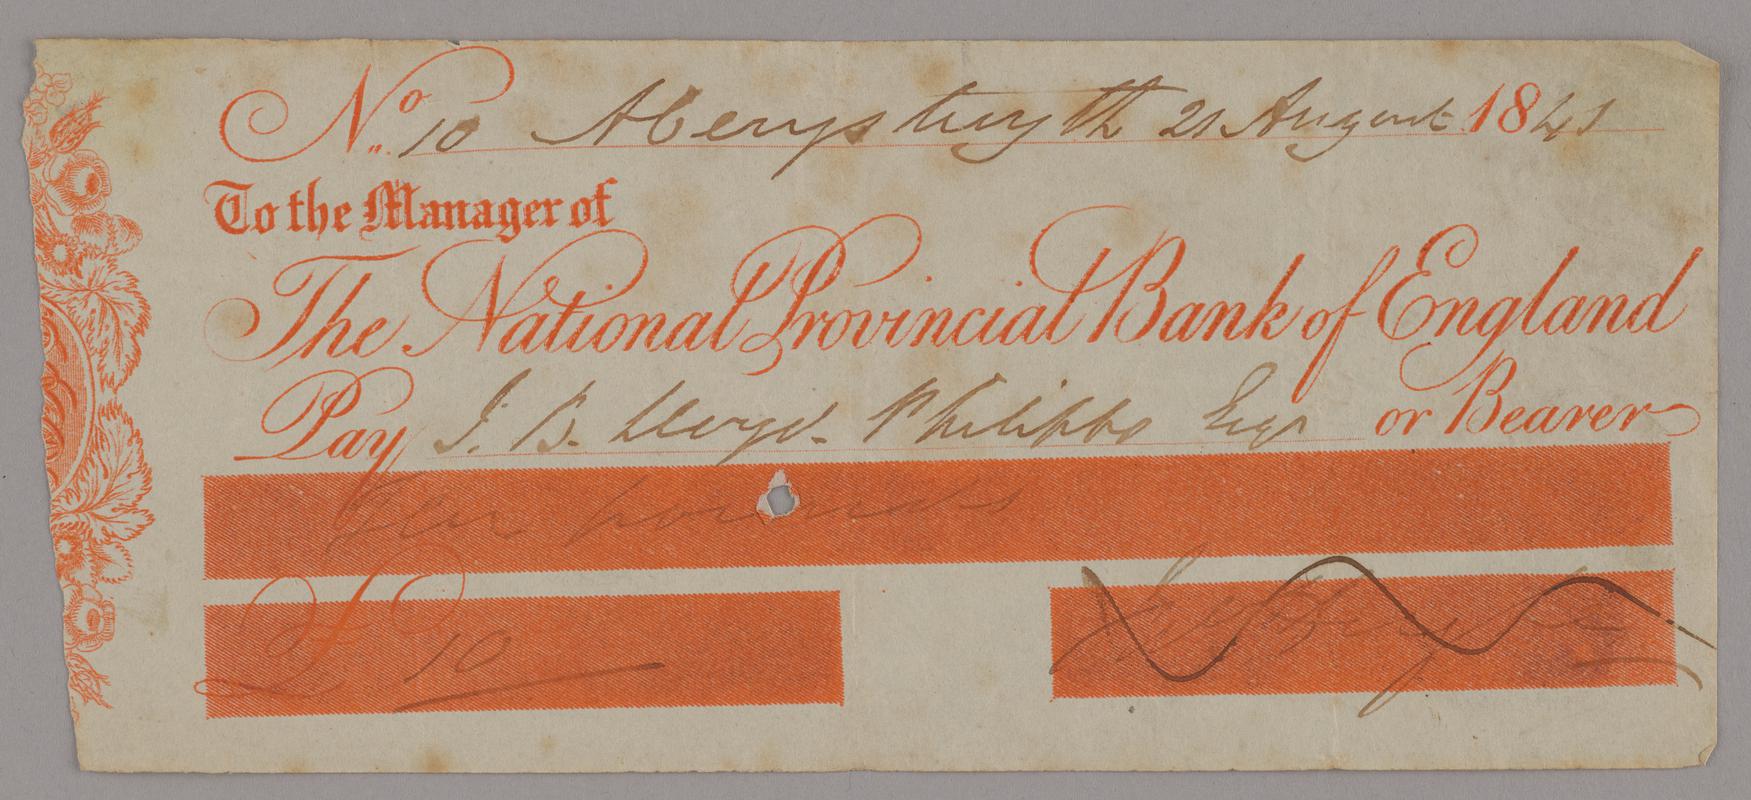 No. 10 Aberystwyth 21 August 1841
To the Manager of
The National Provincial Bank of England
Pay J. B. Lloyd. Philipps Esqr or Bearer
Ten pounds
£ 10